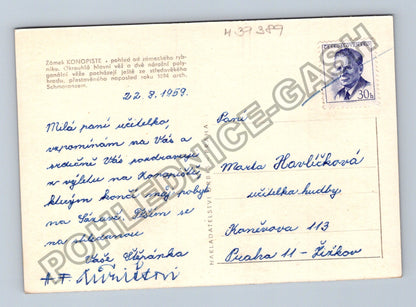 H37389
Zámek KONOPIŠTĚ - pohled od zámeckého ryb-
níku. Okrouhlá hlavní věž a dvě nárožní poly-
gonální věže pocházejí ještě ze středověkého
hradu, přestavěného naposled roku 1894 arch.
Schmoranzem.
22.8.1959.
Milá paní učitelko,
vzpomínám na Vás a
srdečně Vás pozdravuji
z výletu na Konopiště,
kterým končí můj pobyt
na Sázavě. Těším se
na shledanou
Vaše
ČESKOSLOVENSKO
30h
Paní
Marta Havlíčková
učitelka hudby
Koněvova 113
Praha 11 - Žižkov
NAKLADATELSTVÍ
POHLEDNICE-GASH